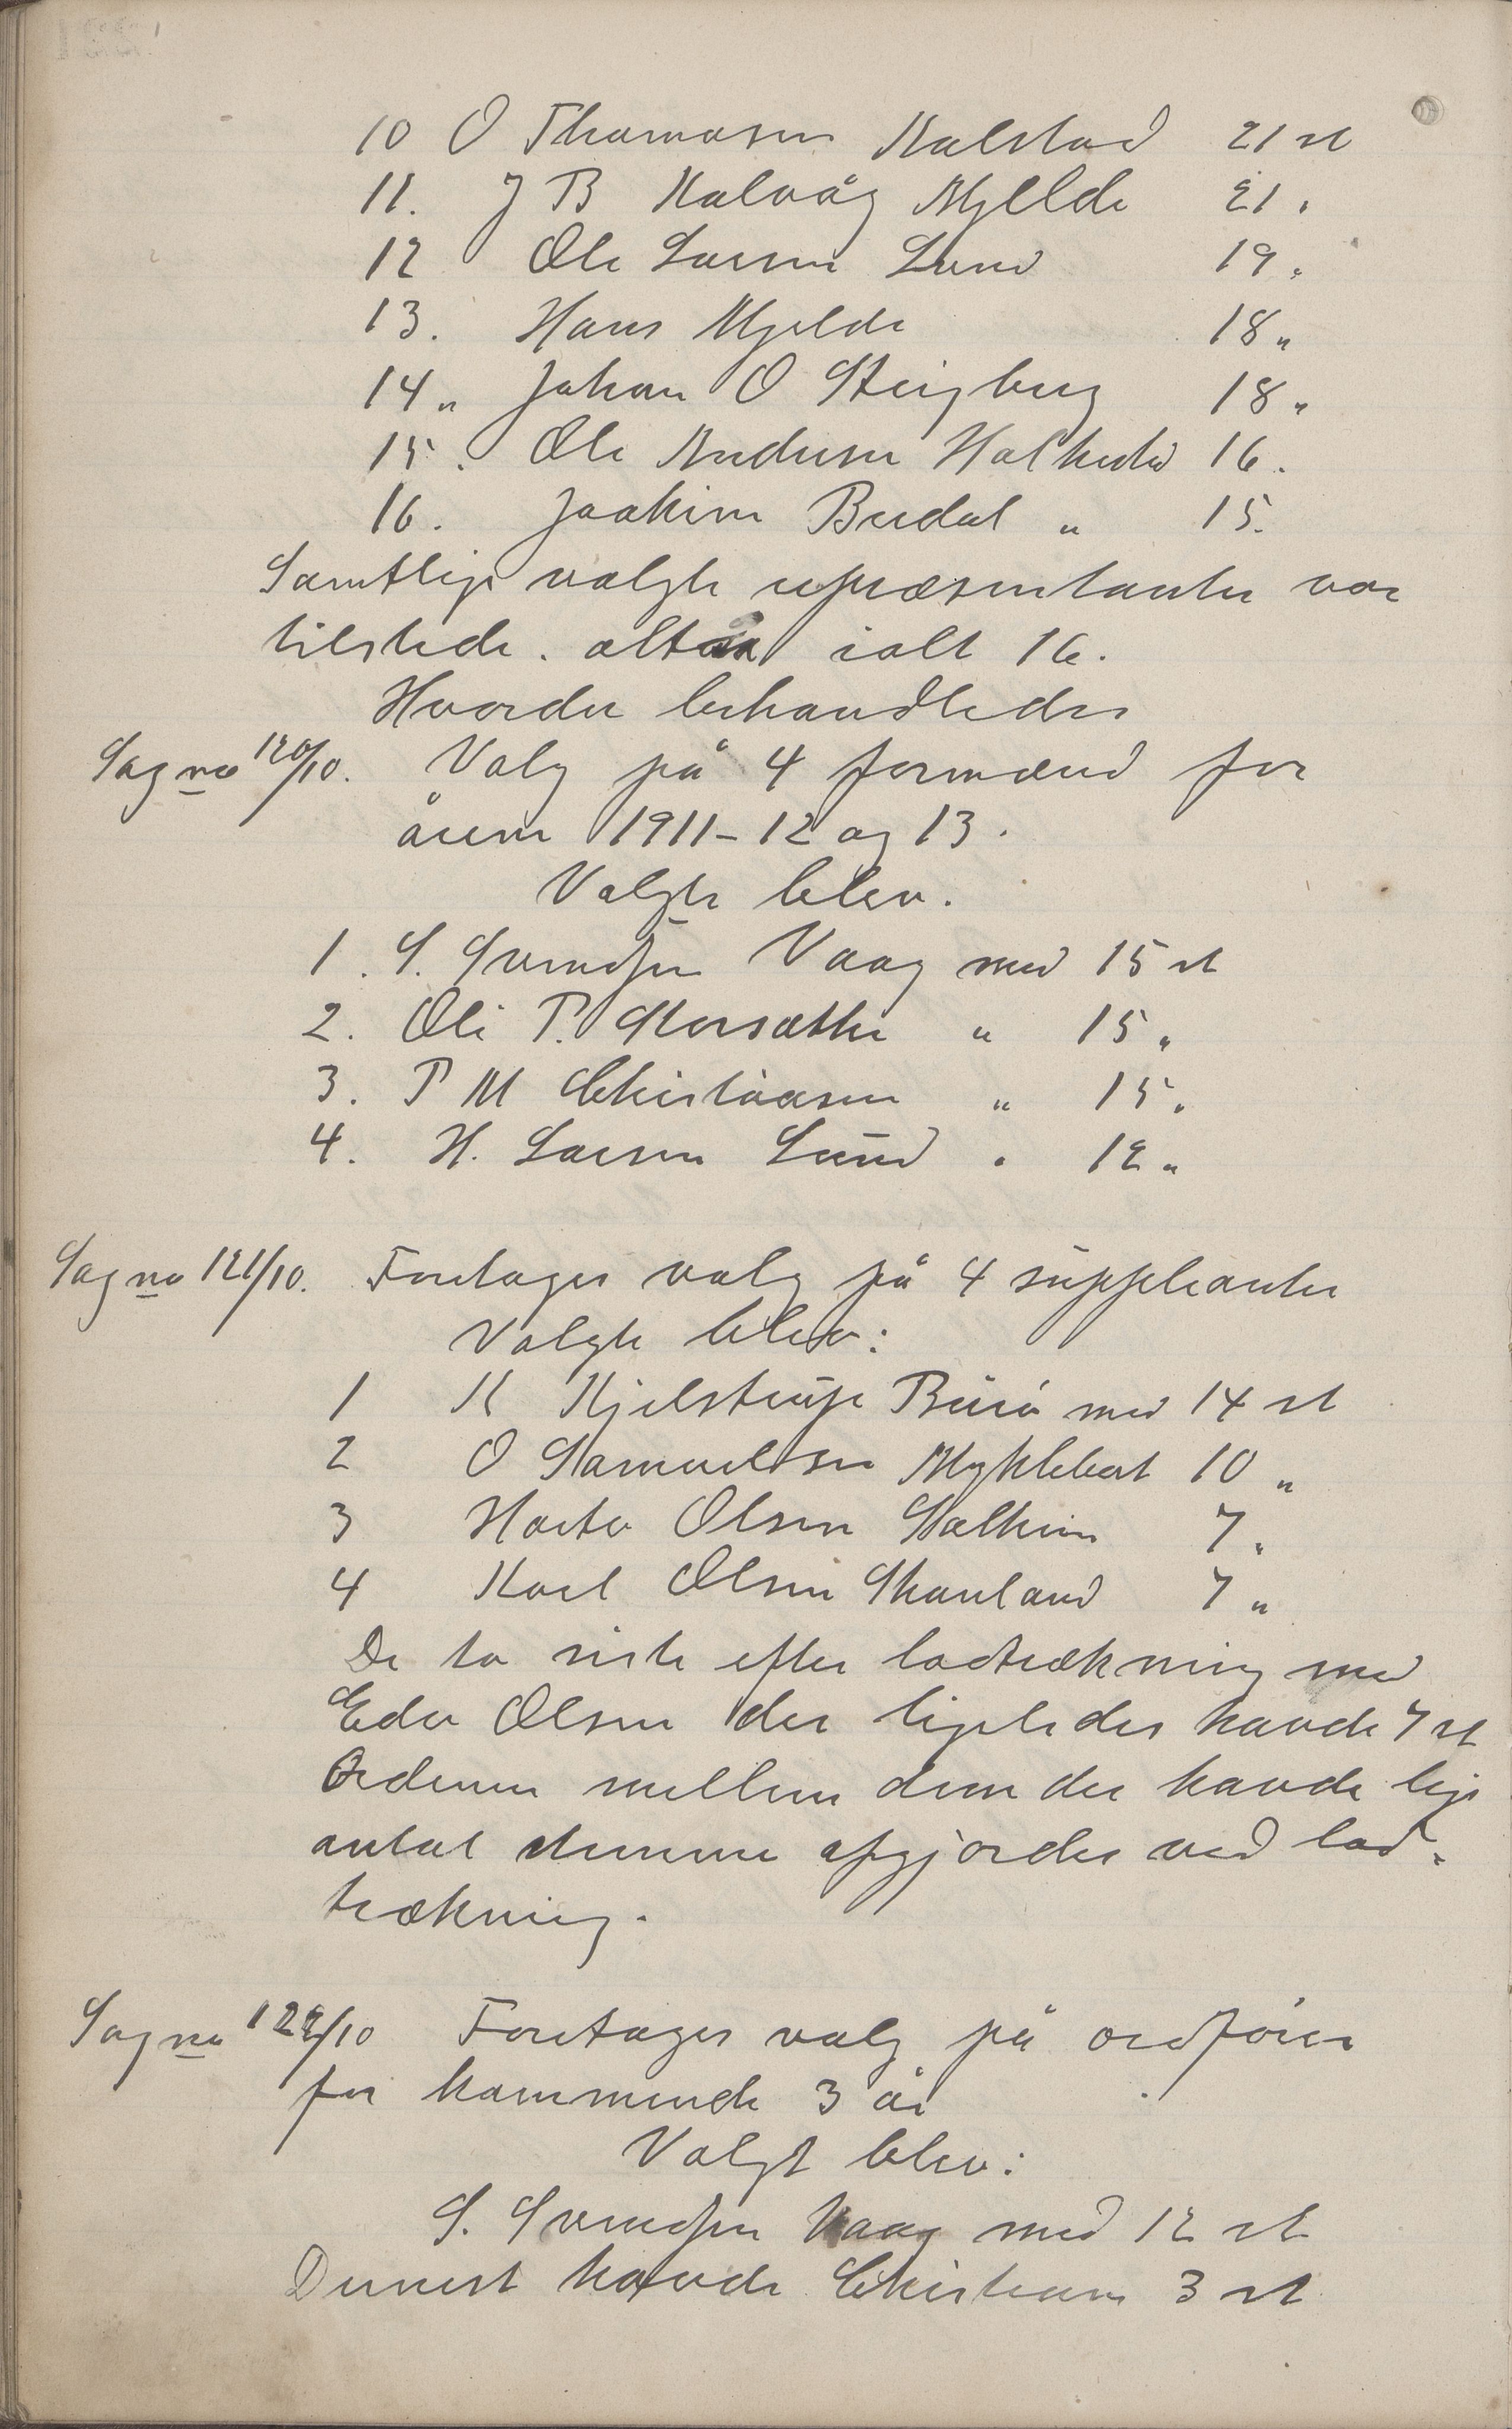 10 O Thomasen Kalstad 21 st
11. J B Kalvåg Mjelde 21 "
12 Ole Larsen Lund 19 "
13. Hans Mjelde 18 "
14 " Johan O Steigberg 18 "
15. Ole Andersen Halkeda 16.
16. Joakim Bredal " 15.
Samtlige valgte repræsentanter var
tilstede. altsaa ialt 16.
Hvorder behandledes
Sag no 120/10. Valg på 4 formænd for
årene 1911-12 og 13.
Valgte blev.
1. S. Svendsen Vaag med 15 st
2. Ole P. Korsæther " 15 "
3. P M Christiansen " 15 "
4. H. Larsen Lund " 12 "
Sag no 121/10. Foretages valg på 4 suppleanter
Valgte blev:
1 K Kjelstrup Burø med 14 st
2 O Samuelsen Myklebost 10 "
3 Olsen 7 "
4 Karl Olsen Skauland 7 "
De to siste efter lodtrækning med
Olsen der ligeledes havde 7 st
Ordenen mellem dem der havde lige
antal stemmer afgjordes ved lod-
trækning.
Sag no 122/10 Foretages valg på ordfører
for kommende 3 år
Valgt blev:
S. Svendsen Vaag med 12 st
Dernest havde Christians 3 st